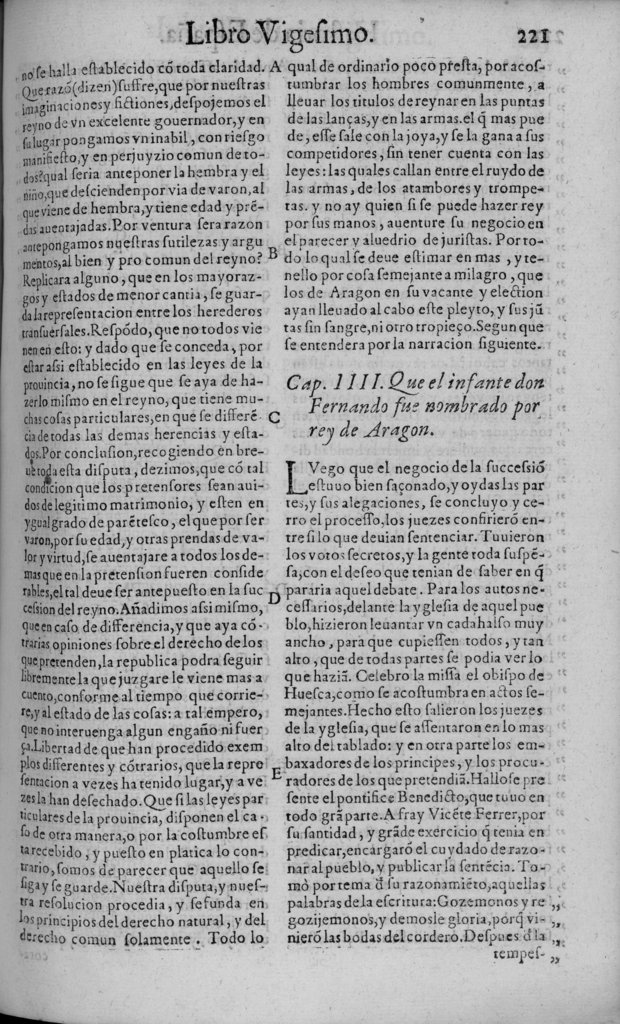 Libro Vigesimo. 221
no se halla establecido cō toda claridad.
Que razō(dizen)suffre,que por nuestras
imaginaciones y fictiones,despojemos el
reyno de vn excelente gouernador,y en
su lugar pongamos vn inabil, con riesgo
manifiesto,y en perjuyzio comun de to-
dos?qual seria anteponer la hembra y el
niño,que descienden por via de varon,al
que viene de hembra,y tiene edad y prē-
das auentajadas.Por ventura sera razon
antepongamos nuestras sutilezas y argu
mentos,al bien y pro comun del reyno?
Replicara alguno, que en los mayoraz-
gos y estados de menor cantia, se guar-
da la representacion entre los herederos
transuersales.Respōdo, que no todos vie
nen en esto: y dado que se conceda, por
estar assi establecido en las leyes de la
prouincia, no se sigue que se aya de ha-
zer lo mismo en el reyno, que tiene mu-
chas cosas particulares,en que se differē-
cia de todas las demas herencias y esta-
dos.Por conclusion,recogiendo en bre-
ue toda esta disputa, dezimos,que cō tal
condicion que los pretensores sean aui-
dos de legitimo matrimonio, y esten en
ygual grado de parētesco, el que por ser
varon,por su edad,y otras prendas de va-
lor y virtud,se auentajare a todos los de-
mas que en la pretension fueren conside
rables,el tal deue ser antepuesto en la suc
cession del reyno.Añadimos assi mismo,
que en caso de differencia,y que aya cō-
trarias opiniones sobre el derecho de los
que pretenden,la republica podra seguir
libremente la que juzgare le viene mas a
cuento,conforme al tiempo que corrie-
re,y al estado de las cosas: a tal empero,
que no interuenga algun engaño ni fuer
ça.Libertad de que han procedido exem
plos differentes y cōtrarios, que la repre
sentacion a vezes ha tenido lugar,y a ve
zes la han desechado.Que si las leyes par
ticulares de la prouincia, disponen el ca-
so de otra manera,o por la costumbre es
ta recebido, y puesto en platica lo con-
trario, somos de parecer que aquello se
siga y se guarde.Nuestra disputa,y nues-
tra resolucion procedia, y se funda en
los principios del derecho natural, y del
derecho comun solamente. Todo lo
A
B
C
D
E
qual de ordinario poco presta, por acos-
tumbrar los hombres comunmente, a
lleuar los titulos de reynar en las puntas
de las lanças,y en las armas.el q̄ mas pue
de, esse sale con la joya,y se la gana a sus
competidores, sin tener cuenta con las
leyes: las quales callan entre el ruydo de
las armas, de los atambores y trompe-
tas. y no ay quien si se puede hazer rey
por sus manos, auenture su negocio en
el parecer y aluedrio de juristas. Por to-
do lo qual se deue estimar en mas, y te-
nello por cosa semejante a milagro, que
los de Aragon en su vacante y election
ayan lleuado al cabo este pleyto, y sus jū
tas sin sangre,ni otro tropieço.Segun que
se entendera por la narracion siguiente.
Cap. IIII. Que el infante don
Fernando fue nombrado por
rey de Aragon.
LVego que el negocio de la successiō
estuuo bien saçonado,y oydas las par
tes,y sus alegaciones, se concluyo y ce-
rro el processo,los juezes confirierō en-
tre si lo que deuian sentenciar. Tuuieron
los votos secretos,y la gente toda suspē-
sa,con el deseo que tenian de saber en q̄
pararia aquel debate. Para los autos ne-
cessarios,delante la yglesia de aquel pue
blo,hizieron leuantar vn cadahalso muy
ancho, para que cupiessen todos, y tan
alto, que de todas partes se podia ver lo
que haziā. Celebro la missa el obispo de
Huesca,como se acostumbra en actos se-
mejantes.Hecho esto salieron los juezes
de la yglesia, que se assentaron en lo mas
alto del tablado: y en otra parte los em-
baxadores de los principes, y los procu-
radores de los que pretendiā.Hallose pre
sente el pontifice Benedicto,que tuuo en
todo grā parte.A fray Vicēte Ferrer,por
su santidad, y grāde exercicio q̄ tenia en
predicar,encargarō el cuydado de razo-
nar al pueblo,y publicar la sentēcia. To-
mò por tema d̄ su razonamiēto,aquellas
palabras de la escritura:Gozemonos y re „
gozijemonos,y demosle gloria,porq̄ vi- „
nierō las bodas del cordero.Despues d̄ la „
tempes- „